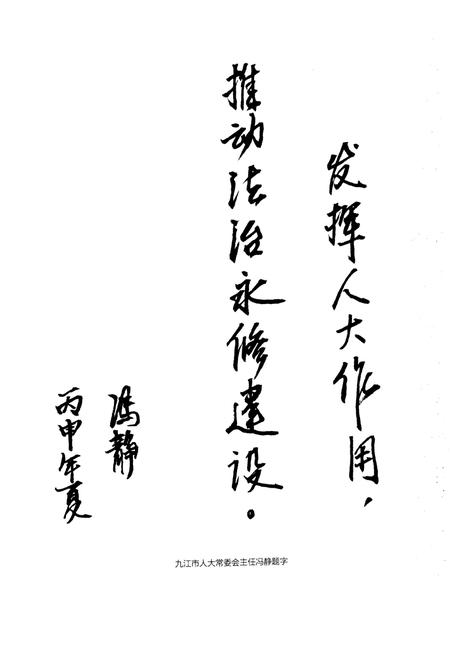 发挥人大作用，
推动法治永修建设。
冯静
丙申年夏
九江市人大常委会主任冯静题字